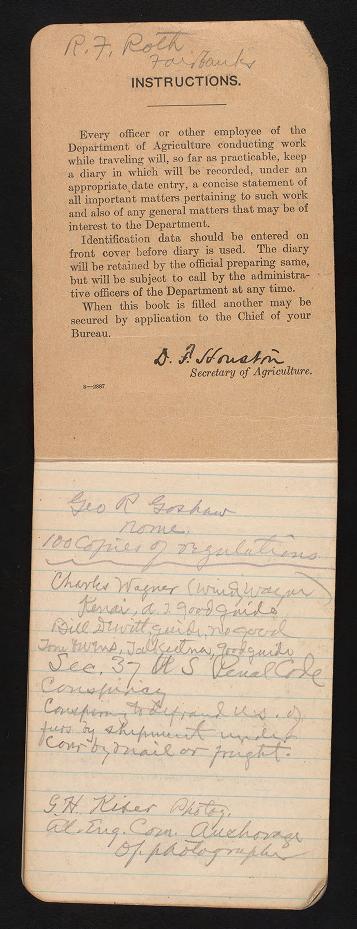 R. F. Roth
Fairbanks
INSTRUCTIONS.
Every officer or other employee of the
Department of Agriculture conducting work
while traveling will, so far as practicable, keep
a diary in which will be recorded, under an
appropriate date entry, a concise statement of
all important matters pertaining to such work
and also of any general matters that may be of
interest to the Department.
Identification data should be entered on
front cover before diary is used. The diary
will be retained by the official preparing same,
but will be subject to call by the administra-
tive officers of the Department at any time.
When this book is filled another may be
secured by application to the Chief of your
Bureau.
D. F. Houston
Secretary of Agriculture.
8—2887
Geo R Goshaw
Nome.
100 Copies of regulations
Charles Wagner (Windy Wagner)
Kenai, a good guide
Bill Dewitt, guide, no good
Tom guide, good guide
Sec. 37 U S Penal Code
Conspiracy
to defraud U.S. of
furs by shipment under
cover by mail or freight.
G.H. Kiser Photog.
Al. Eng. Com. Anchorage
Of. photographer